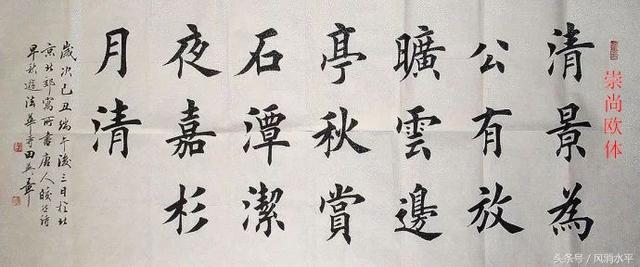 崇尚欧体
清景為
公有放
曠雲邊
亭秋賞
石潭潔
夜嘉杉
月清
歲次己丑端午後三日於北
京北郊寓所書唐人皎然詩
早秋遊法華寺田英章
头条号 / 风消水平